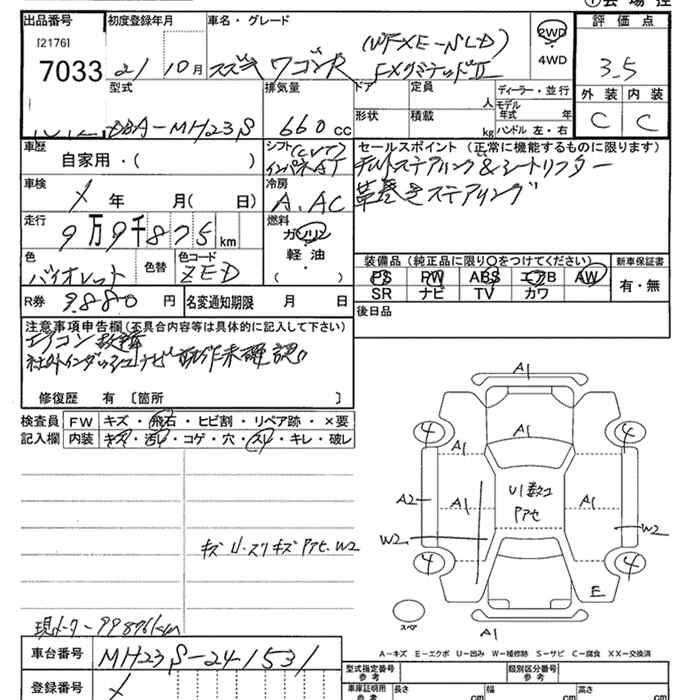 ①会場控
出品番号 初度登録年月 車名・グレード 評価点
[2176] 7033
21/10月 スズキ ワゴンR (WFXE-SLD) FXリミテッドⅡ
2WD 4WD
3.5
外装 内装
C C
型式 排気量 ドア 定員 人 ディーラー・並行
DBA-MH23S 660cc 形状 積載 kg モデル年式 年
ハンドル 左・右
車歴 自家用・( )
シフト (CVT) インパネAT
セールスポイント (正常に機能するものに限ります)
チルトステアリング&シートリフター
革巻きステアリング
車検 年 月( 日)
冷房 A.AC
走行 9万9千875km
燃料 ガソリン 軽油・( )
色 バイオレット 色替 色コード ZED
装備品 (純正品に限り○をつけてください) 新車保証書
PS PW ABS エアB AW
SR ナビ TV カワ
有・無
R券 9880円 名変通知期限 月 日
後日品
注意事項申告欄 (不具合内容等は具体的に記入して下さい)
エアコン故障
社外インダッシュナビ動作未確認。
修復歴 有 〔箇所 〕
検査員 FW キズ・飛石・ヒビ割・リペア跡・×要
記入欄 内装 キズ・汚れ・コゲ・穴・スレ・キレ・破レ
A1
4 A1 4
A1
A2 A1 U1数コ アアセ A1
W2 W2
4 4
E
スペア
A1
キズ U.スリキズ アアセ.W2
現メーター99876km
A-キズ E-エクボ U-凹み W-補修跡 S-サビ C-腐食 XX-交換済
車台番号 MH23S-241531
型式指定番号 参考 類別区分番号 参考
登録番号
車庫証明用 参考 長さ cm 幅 cm 高さ cm